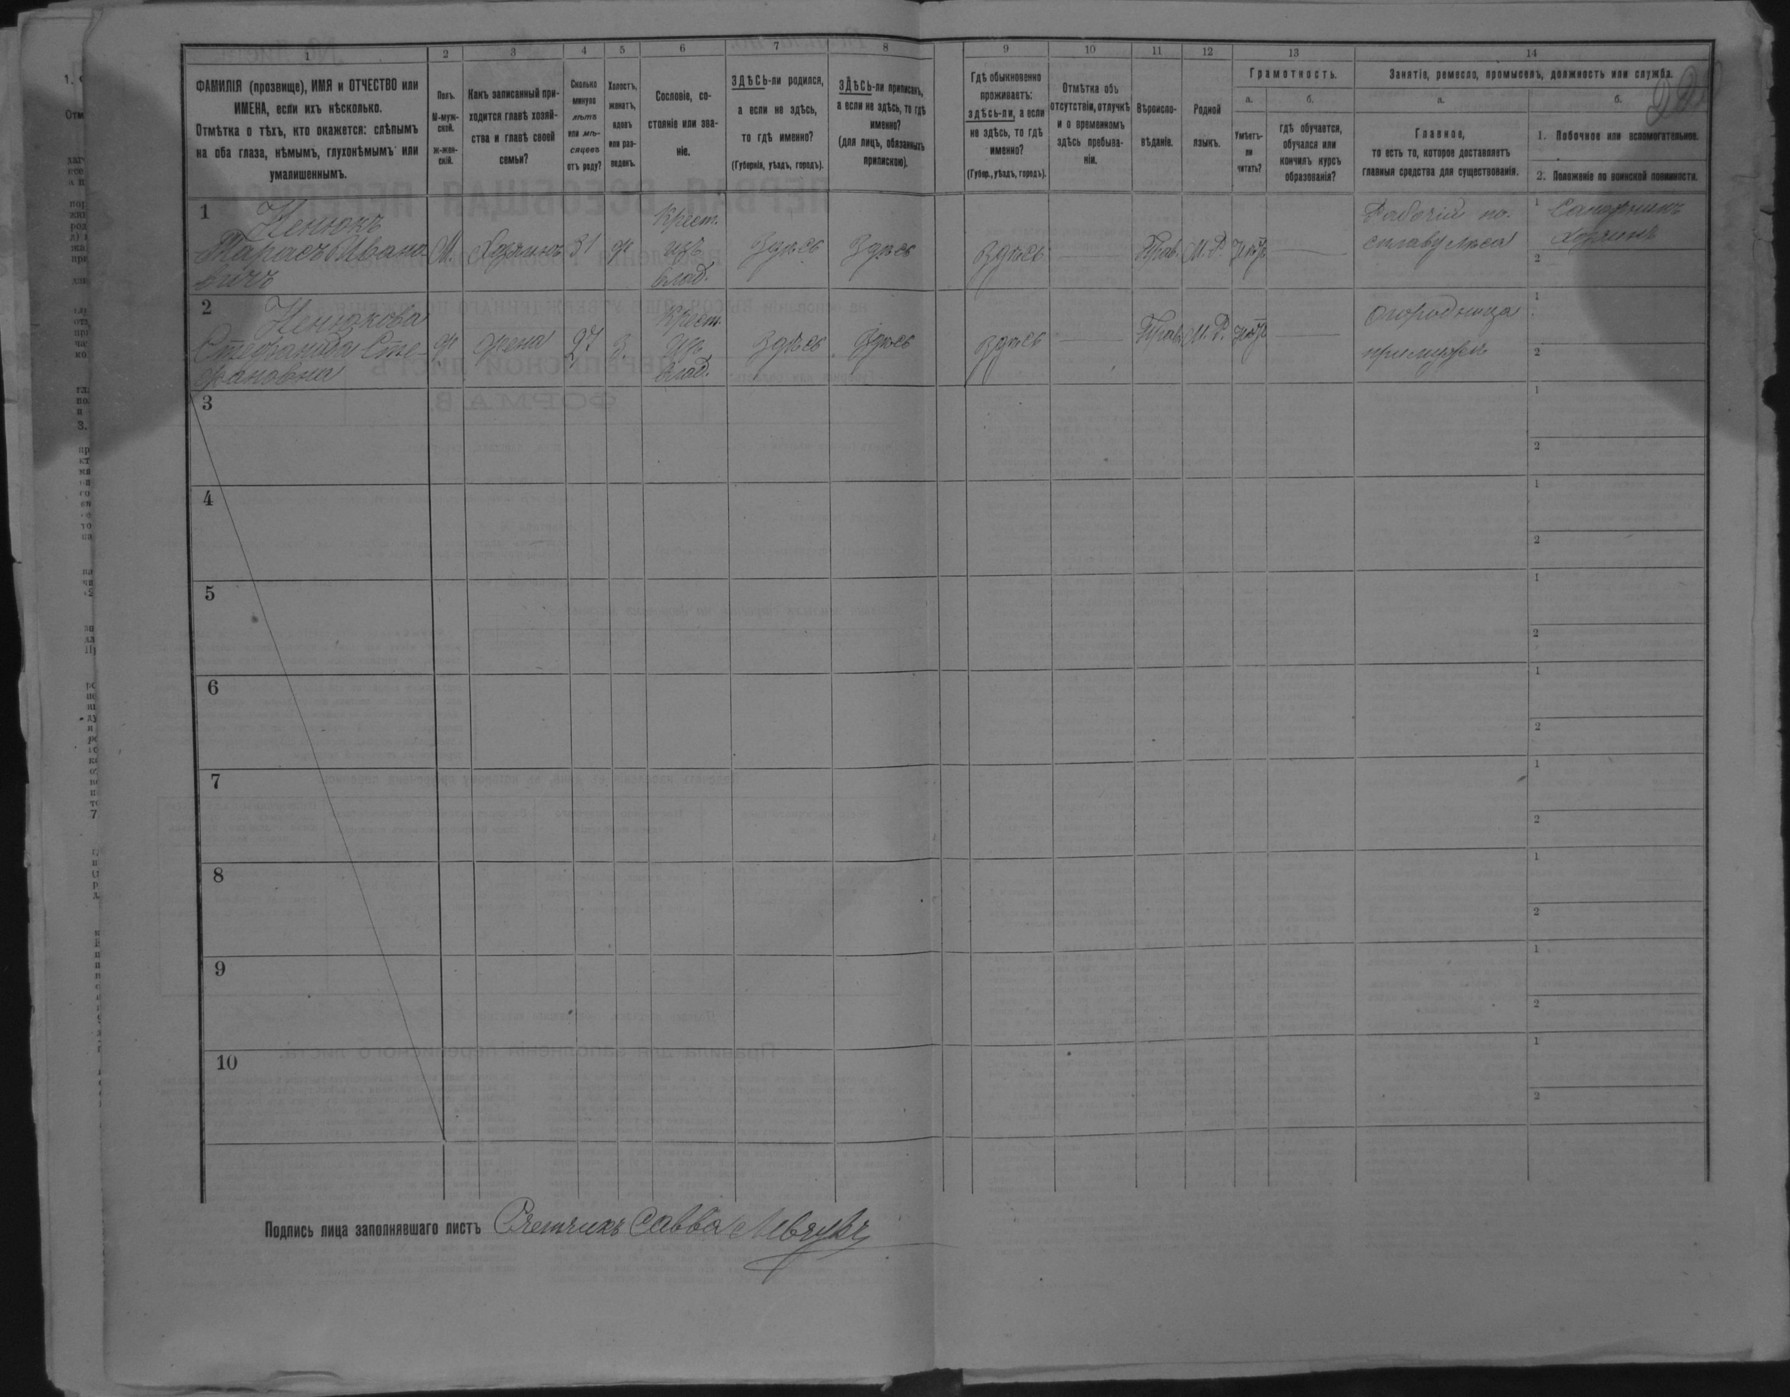 1 2 3 4 5 6 7 8 9 10 11 12 13 14
ФАМИЛІЯ (прозвище), ИМЯ и ОТЧЕСТВО или
ИМЕНА, если ихъ нѣсколько.
Отмѣтка о тѣхъ, кто окажется: слѣпымъ
на оба глаза, нѣмымъ, глухонѣмымъ или
умалишеннымъ.
Полъ.
М-муж-
ской.
ж-жен-
скій.
Какъ записанный при-
ходится главѣ хозяй-
ства и главѣ своей
семьи?
Сколько
минуло
лѣтъ
или мѣ-
сяцевъ
отъ роду?
Холостъ,
женатъ,
вдовъ
или раз-
веденъ.
Сословіе, со-
стояніе или зва-
ніе.
ЗДѢСЬ-ли родился,
а если не здѣсь,
то гдѣ именно?
(Губернія, уѣздъ, городъ).
ЗДѢСЬ-ли приписанъ,
а если не здѣсь, то гдѣ
именно?
(для лицъ, обязанныхъ
припискою).
Гдѣ обыкновенно
проживаетъ:
здѣсь-ли, а если
не здѣсь, то гдѣ
именно?
(Губер., уѣздъ, городъ).
Отмѣтка объ
отсутствіи, отлучкѣ
и о временномъ
здѣсь пребыва-
ніи.
Вѣроиспо-
вѣданіе.
Родной
языкъ.
Грамотность.
а.
Умѣетъ-
ли
читать?
б.
гдѣ обучается,
обучался или
кончилъ курсъ
образованія?
Занятіе, ремесло, промыселъ, должность или служба.
а.
Главное,
то есть то, которое доставляетъ
главныя средства для существованія.
б.
1. Побочное или вспомогательное.
2. Положеніе по воинской повинности.
1 Ненюкъ
Тарасъ Ивано
вичъ
М Хозяинъ 31 ж Крест.
изъ
влад.
Здѣсь Здѣсь Здѣсь Прав. М.Р. нѣтъ
Рабочій по
сплаву лѣса
1
Хозяинъ
2
2 Ненюкова
Стефанида Сте-
фановна
ж жена 27 З. Крест.
изъ
влад.
Здѣсь Здѣсь Здѣсь Прав. М.Р. нѣтъ
огородница
при мужѣ
1
2
3 1
2
4 1
2
5 1
2
6 1
2
7 1
2
8 1
2
9 1
2
10 1
2
Подпись лица заполнявшаго листъ Счетчикъ Савва